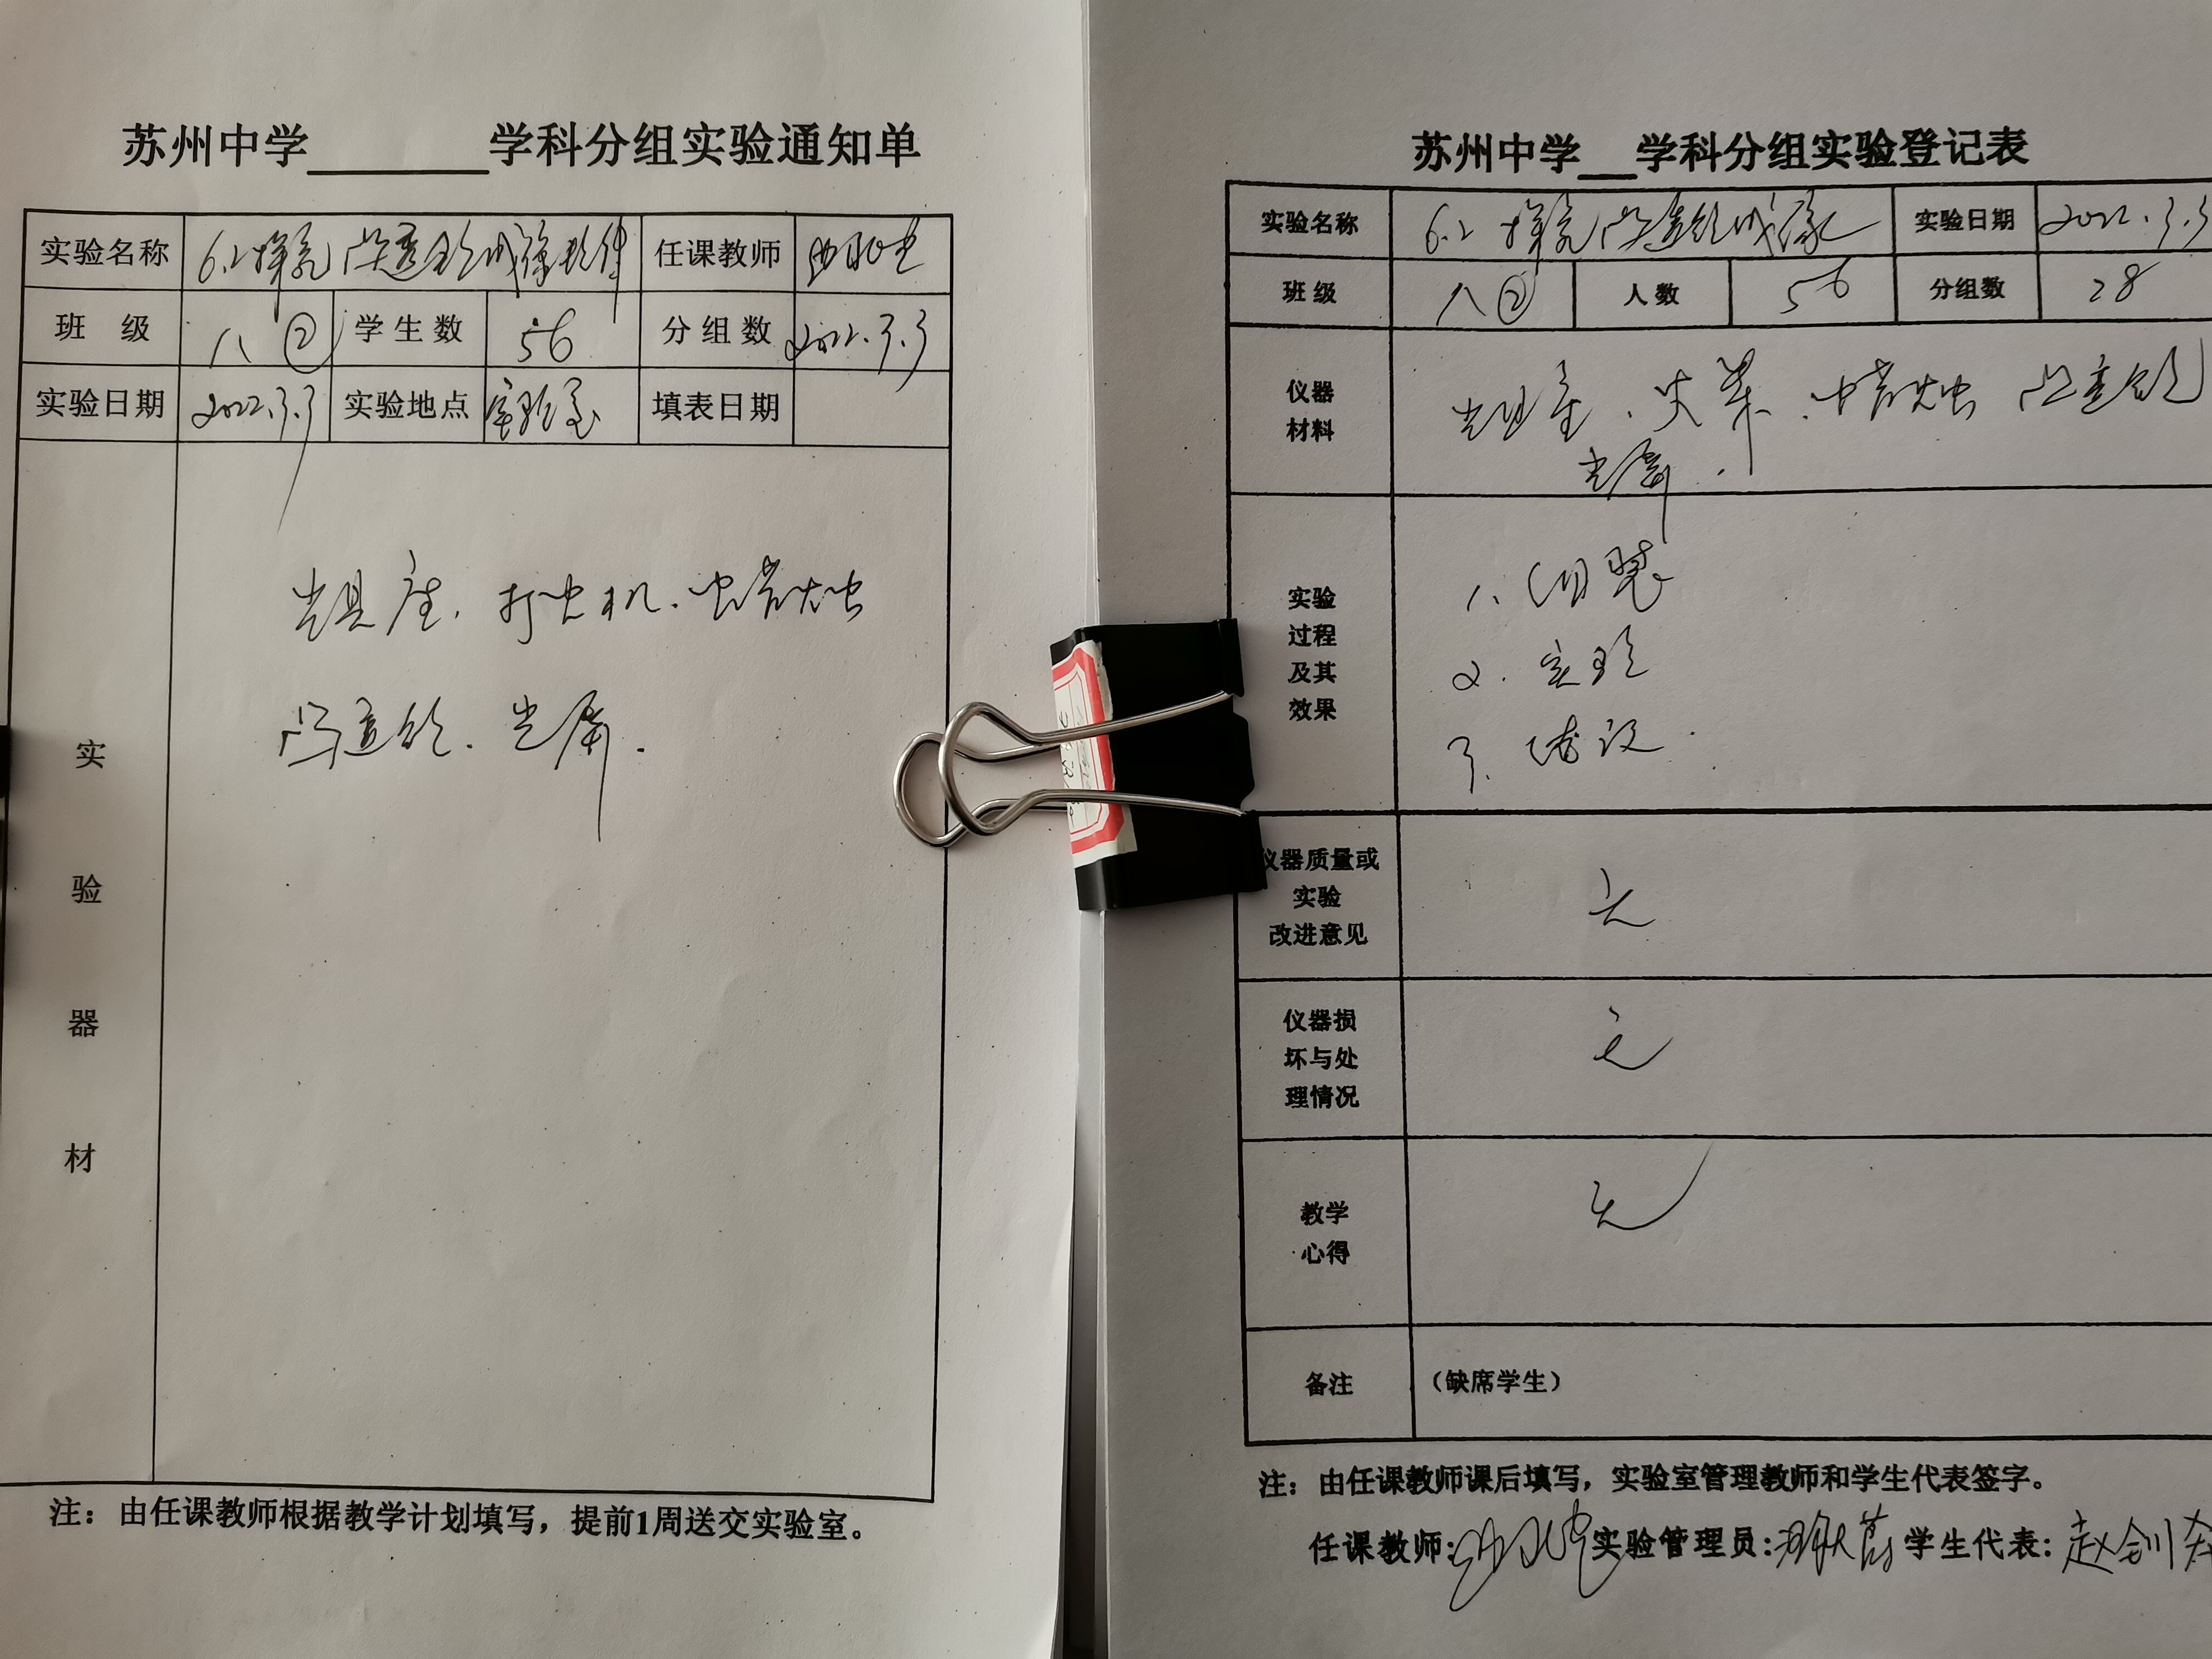 苏州中学 学科分组实验通知单
实验名称 6.2探究凸透镜成像规律 任课教师
班 级 八② 学生数 56 分组数 2022.3.3
实验日期 2022.3.3 实验地点 实验室 填表日期
实验器材
光具座、打火机、蜡烛
凸透镜、光屏.
注：由任课教师根据教学计划填写，提前1周送交实验室。
苏州中学 学科分组实验登记表
实验名称 6.2 探究凸透镜成像 实验日期 2022.3.3
班 级 八② 人 数 56 分组数 28
仪器
材料
光具座、火柴、蜡烛 凸透镜
光屏.
实验
过程
及其
效果
1、组装
2. 实验
3、结论.
仪器质量或
实验
改进意见
无
仪器损
坏与处
理情况
无
教学
心得
无
备注 （缺席学生）
注：由任课教师课后填写，实验室管理教师和学生代表签字。
任课教师: 实验管理员: 学生代表: 赵